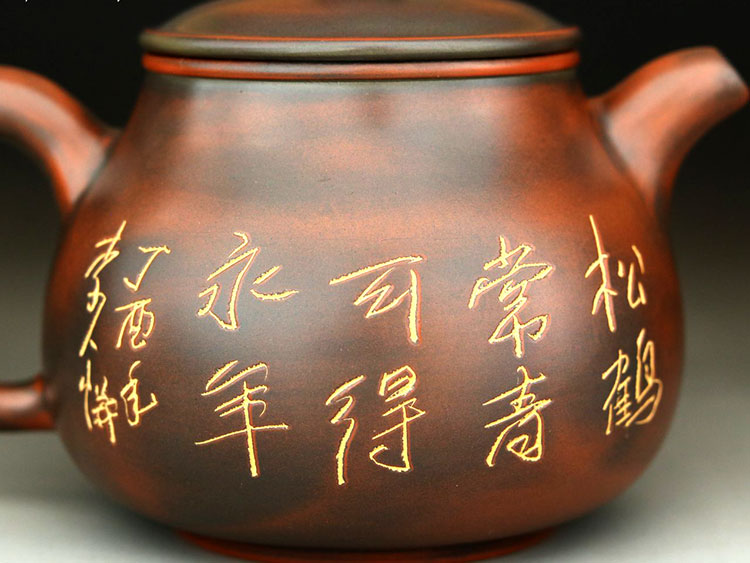 松鹤
常青
可得
永年
丁酉年